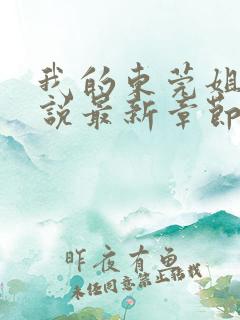 我的东莞姐
说最新章节
昨夜有鱼
未经同意禁止转载